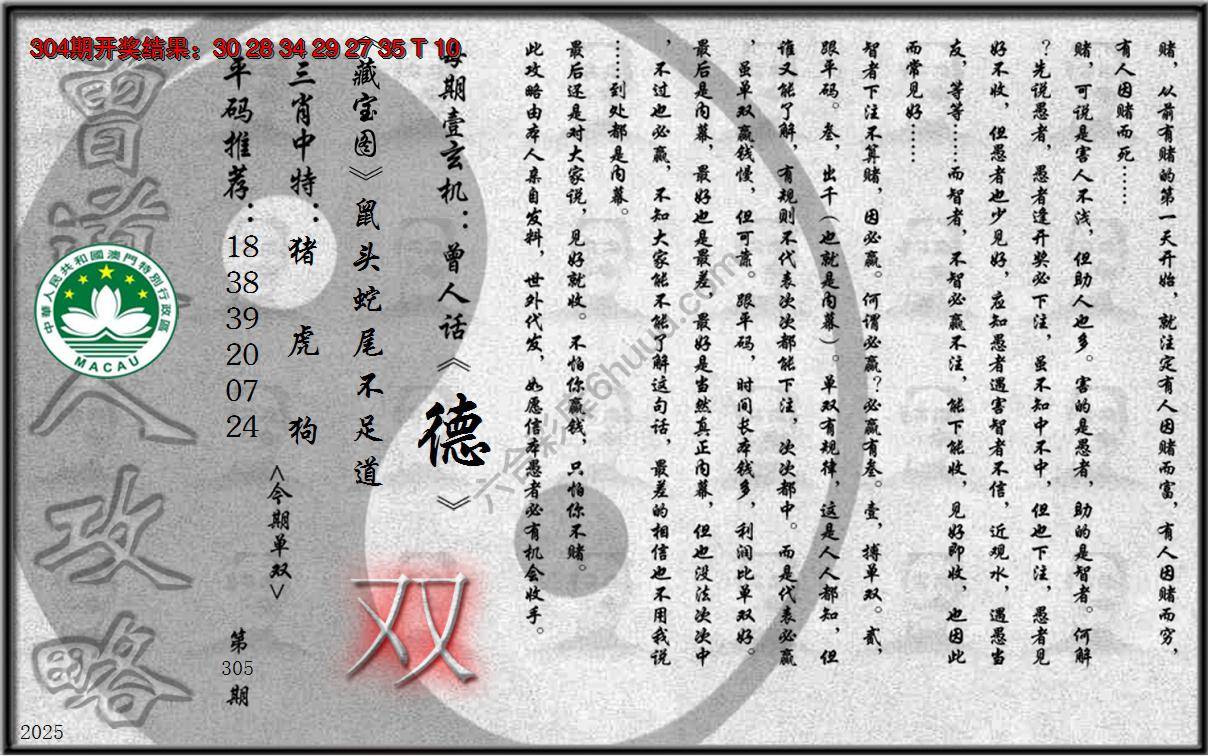 304期开奖结果：30 28 34 29 27 35 T 10
赌，从前有赌的第一天开始，就注定有人因赌而富，有人因赌而穷，
有人因赌而死……
赌，可说是害人不浅，但助人也多。害的是愚者，助的是智者。何解
？先说愚者，愚者逢开奖必下注，虽不知中不中，但也下注，愚者见
好不收，但愚者也少见好，应知愚者遇害智者不信，近观水，遇愚当
友，等等……而智者，不智必赢不注，能下能收，见好即收，也因此
而常见好……
智者下注不算赌，因必赢。何谓必赢？必赢有叁。壹，搏单双。贰，
跟平码。叁，出千（也就是内幕）。单双有规律，这是人人都知，但
谁又能了解，有规则不代表次次都能下注，次次都中。而是代表必赢
，虽单双赢钱慢，但可靠。跟平码，时间长本钱多，利润比单双好。
最后是内幕，最好也是最差，最好是当然真正内幕，但也没法次次中
，不过也必赢，不知大家能不能了解这句话，最差的相信也不用我说
……到处都是内幕。
最后还是对大家说，见好就收。不怕你赢钱，只怕你不赌。
此攻略由本人亲自发料，世外代发，如愿信本愚者必有机会收手。
每期壹玄机：曾人话《德》
《藏宝图》鼠头蛇尾不足道
双
三肖中特：猪 虎 狗
<今期单双>
平码推荐：18 38 39 20 07 24
第305期
曾道人攻略
中華人民共和國澳門特別行政區
MACAU
六合彩库6huuu.com
2025